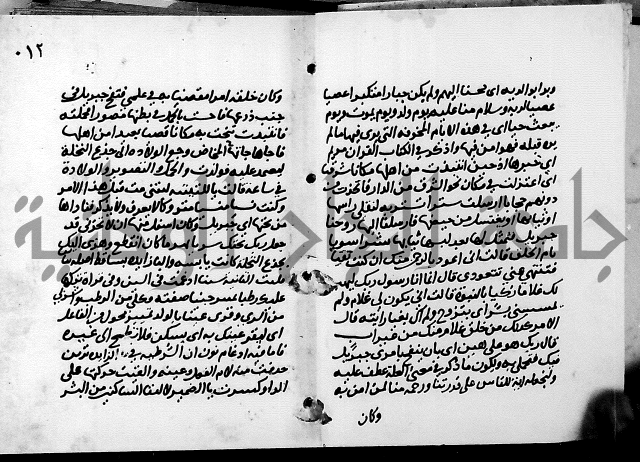 وبرا بوالديه اى محسنا اليهم ولم يكن جبارا متكبرا عصيا
عصيا لربه وسلام منا عليه يوم ولد ويوم يموت ويوم
يبعث حيا اى فى هذه الايام المخوفة التى يرى فيها مالم
ير قبله فهو امن فيها واذكر فى الكتاب القران مريم
اى خبرها اذ حين انتبذت من اهلها مكانا شرقيا
اى اعتزلت فى مكان نحو الشرق من الدار فاتخذت
دونهم حجابا ارسلت سترا تستتر به لتفلى راسها
او ثيابها او تغتسل من حيضها فارسلنا اليها روحنا
جبريل فتمثل لها بعد لبسها ثيابها بشرا سويا
تام الخلق قالت انى اعوذ بالرحمن منك ان كنت تقيا
فتنتهى عنى بتعوذى قال انما انا رسول ربك ليهب
لك غلاما زكيا بالنبوة قالت انى يكون لى غلام ولم
يمسسنى بشر اى بتزوج ولم اك بغيا زانية قال
الامر كذلك من خلق غلام منك من غير اب
قال ربك هو على هين اى بان ينفخ بامرى جبريل
فيك فتحملى به ولكون ما ذكر فى معنى العلة عطف عليه
ولنجعله اية للناس على قدرتنا ورحمة منا لمن امن به
وكان
٠١٢
وكان خلقه امرا مقضيا به فى علمى فنفخ جبريل فى
جيب درعها فاحست بالحمل فى بطنها مصورا فحملته
فانتبذت تنحت به مكانا قصيا بعيدا من اهلها
فاجاها جا بها المخاض وجع الولادة الى جذع النخلة
لتعتمد عليه فولدت والحمل والتصوير والولادة
فى ساعة قالت يا للتنبيه ليتنى مت قبل هذا الامر
وكنت نسيا منسيا متروكا لا يعرف ولا يذكر فناداها
من تحتها اى جبريل وكان اسفل منها ان لا تحزنى قد
جعل ربك تحتك سريا نهر ماء كان انقطع وهزى اليك
بجذع النخلة كانت يابسة والباء زايدة تساقط اصله بتاءين
قلبت الثانية سينا وادغمت فى السين وفى قراة تركها
عليك رطبا تمييز جنيا صفته فكلى من الرطب واشربى
من السرى وقرى عينا بالولد تمييز محول من الفاعل
اى لتقر عينك به اى تسكن فلا تطمح الى غيره
فاما فيه ادغام نون ان الشرطية فى ما الزايدة ترين
حذفت منه لام الفعل وعينه والقيت حركتها على
الراء وكسرت ياء الضمير لالتقاء الساكنين من البشر
جامعة الملك سعود